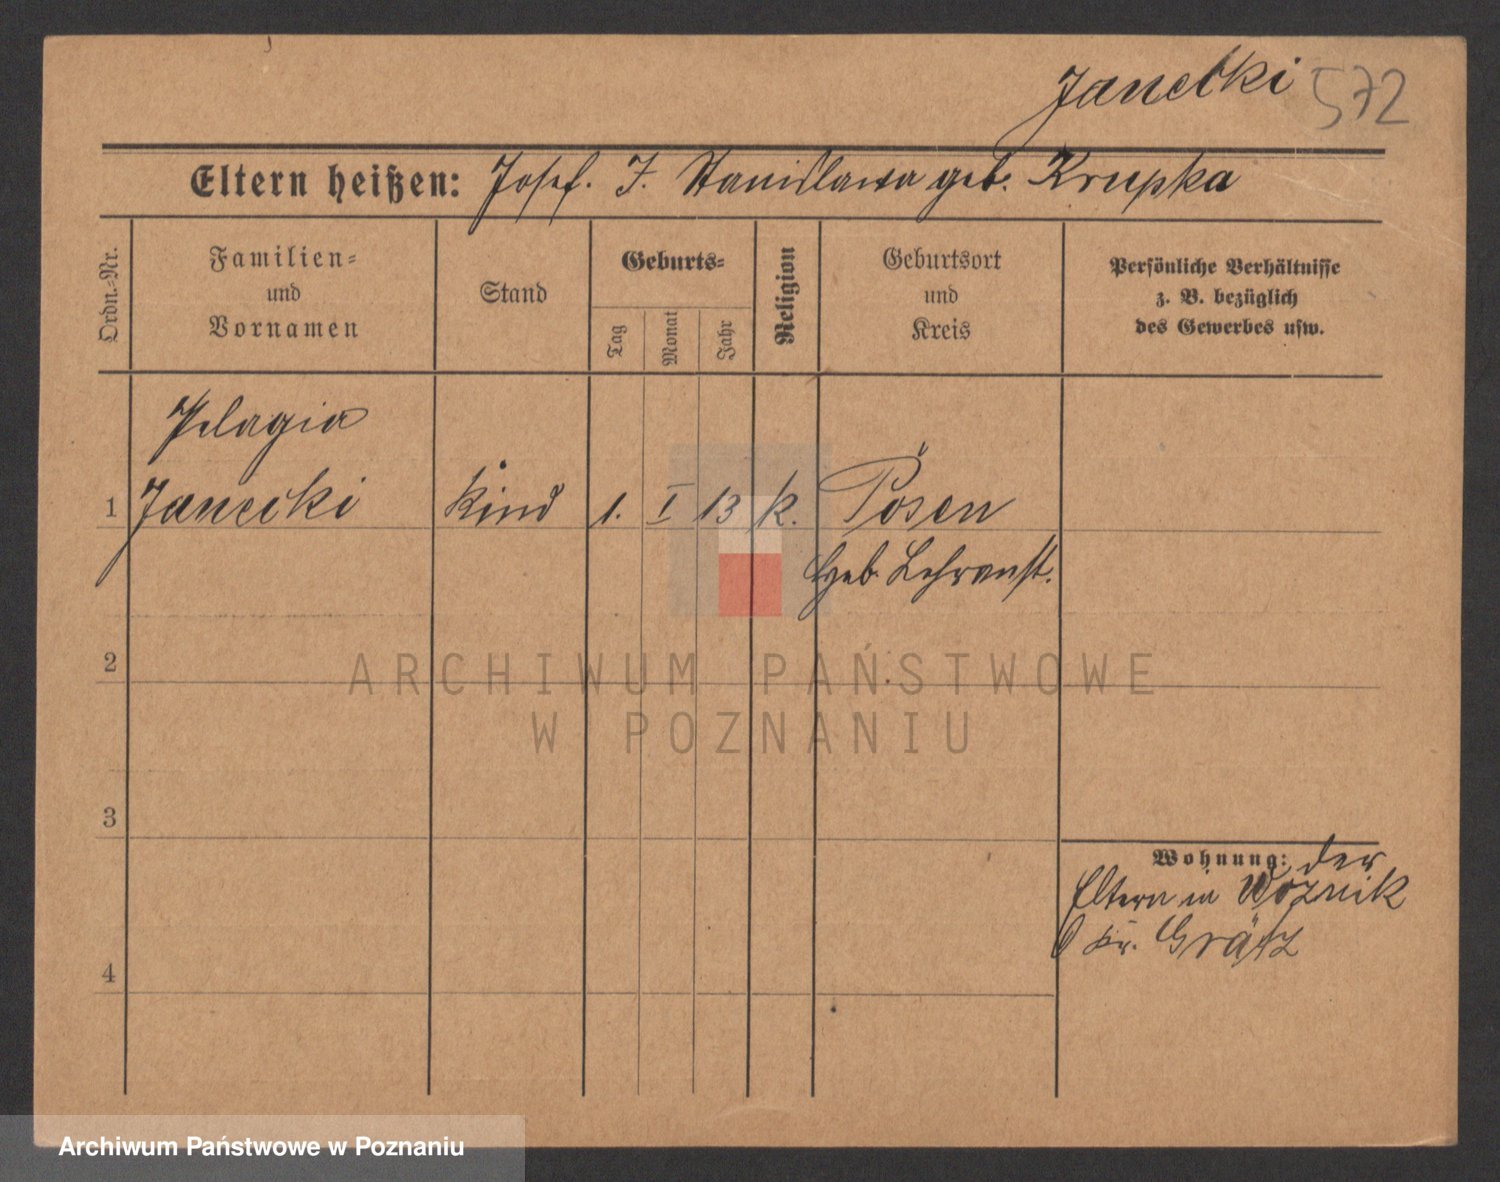 Janecki 572
Eltern heißen: Josef. J. Stanislawa geb. Krupka
Ordn.-Nr.
Familien-
und
Vornamen
Stand
Geburts-
Tag
Monat
Jahr
Religion
Geburtsort
und
Kreis
Persönliche Verhältnisse
z. B. bezüglich
des Gewerbes usw.
Pelagia
1 Janecki Kind 1. I 13 k. Posen
Heb. Lehranst.
2
ARCHIWUM PAŃSTWOWE
W POZNANIU
3
Wohnung: der
Eltern in Woznik
Kr. Grätz
4
Archiwum Państwowe w Poznaniu